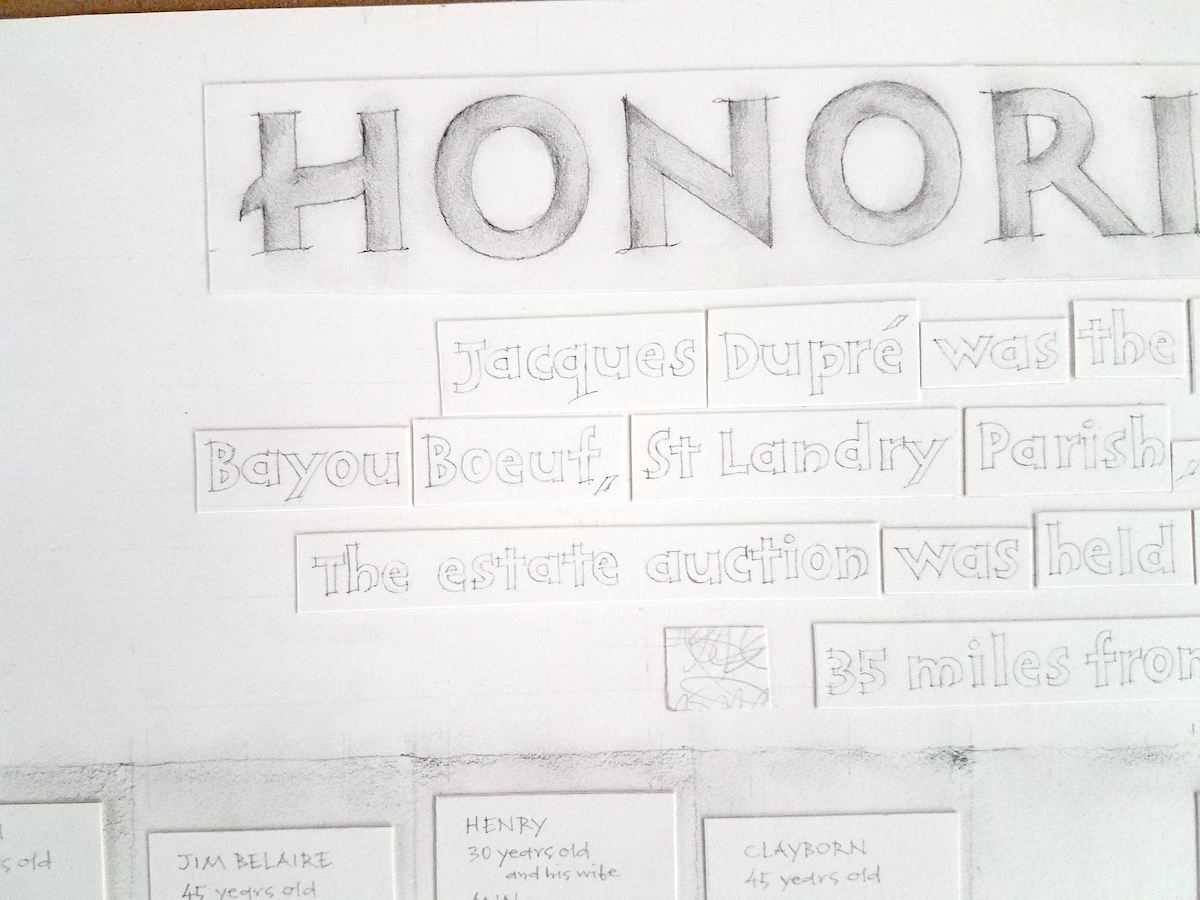 HONORI
Jacques Dupré was the
Bayou Boeuf, St Landry Parish,
The estate auction was held
35 miles from
s old
JIM BELAIRE
45 years old
HENRY
30 years old
and his wife
ANN
CLAYBORN
45 years old